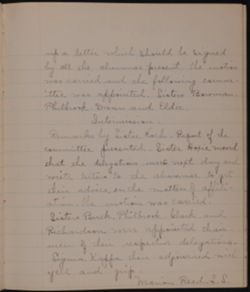 up a letter which should be signed
by all the alumnae present. the motion
was carried and the following comm-
ittee was appointed. Sisters Bowman
Philbrook Dunn and Elder.
Intermission.
Remarks by Sister Koch. Report of the
committee presented. Sister Hopie moved
that the delegations meet next day and
write letters to the alumnae to get
their advice on the matter of
the motion was carried.
Sisters Burck, Philbrook, Clark and
Richardson were appointed chair-
men of their respective delegations.
Sigma Kappa then adjourned with
yell and grip.
Marion Reed. G.S.